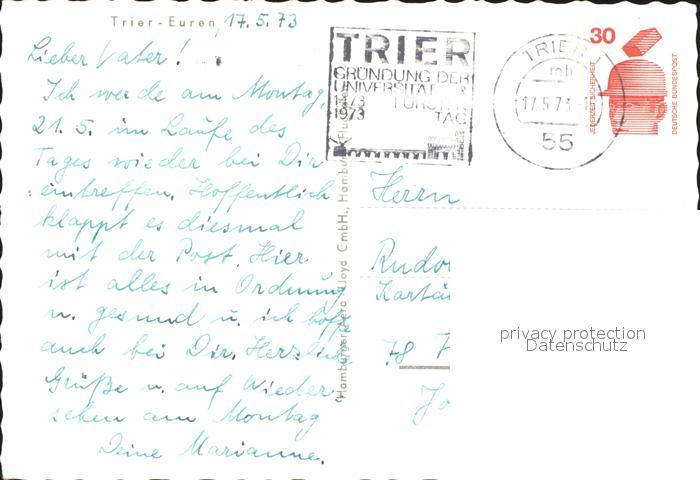 Trier-Euren, 17.5.73
Lieber Vater!
Ich werde am Montag,
21.5. im Laufe des
Tages wieder bei Dir
eintreffen. Hoffentlich
klappt es diesmal
mit der Post. Hier
ist alles in Ordnung
u. gesund u. ich hoffe
auch bei Dir. Herzliche
Grüße u. auf Wieder
sehen am Montag
Deine Marianne.
Hamburger Aero Lloyd GmbH., Hamburg
TRIER
GRÜNDUNG DER
UNIVERSITÄT &
1473
1973 TAG
TRIER
mb
17.5.73
55
30
JEDERZEIT SICHERHEIT
DEUTSCHE BUNDESPOST
Herrn
78
privacy protection
Datenschutz